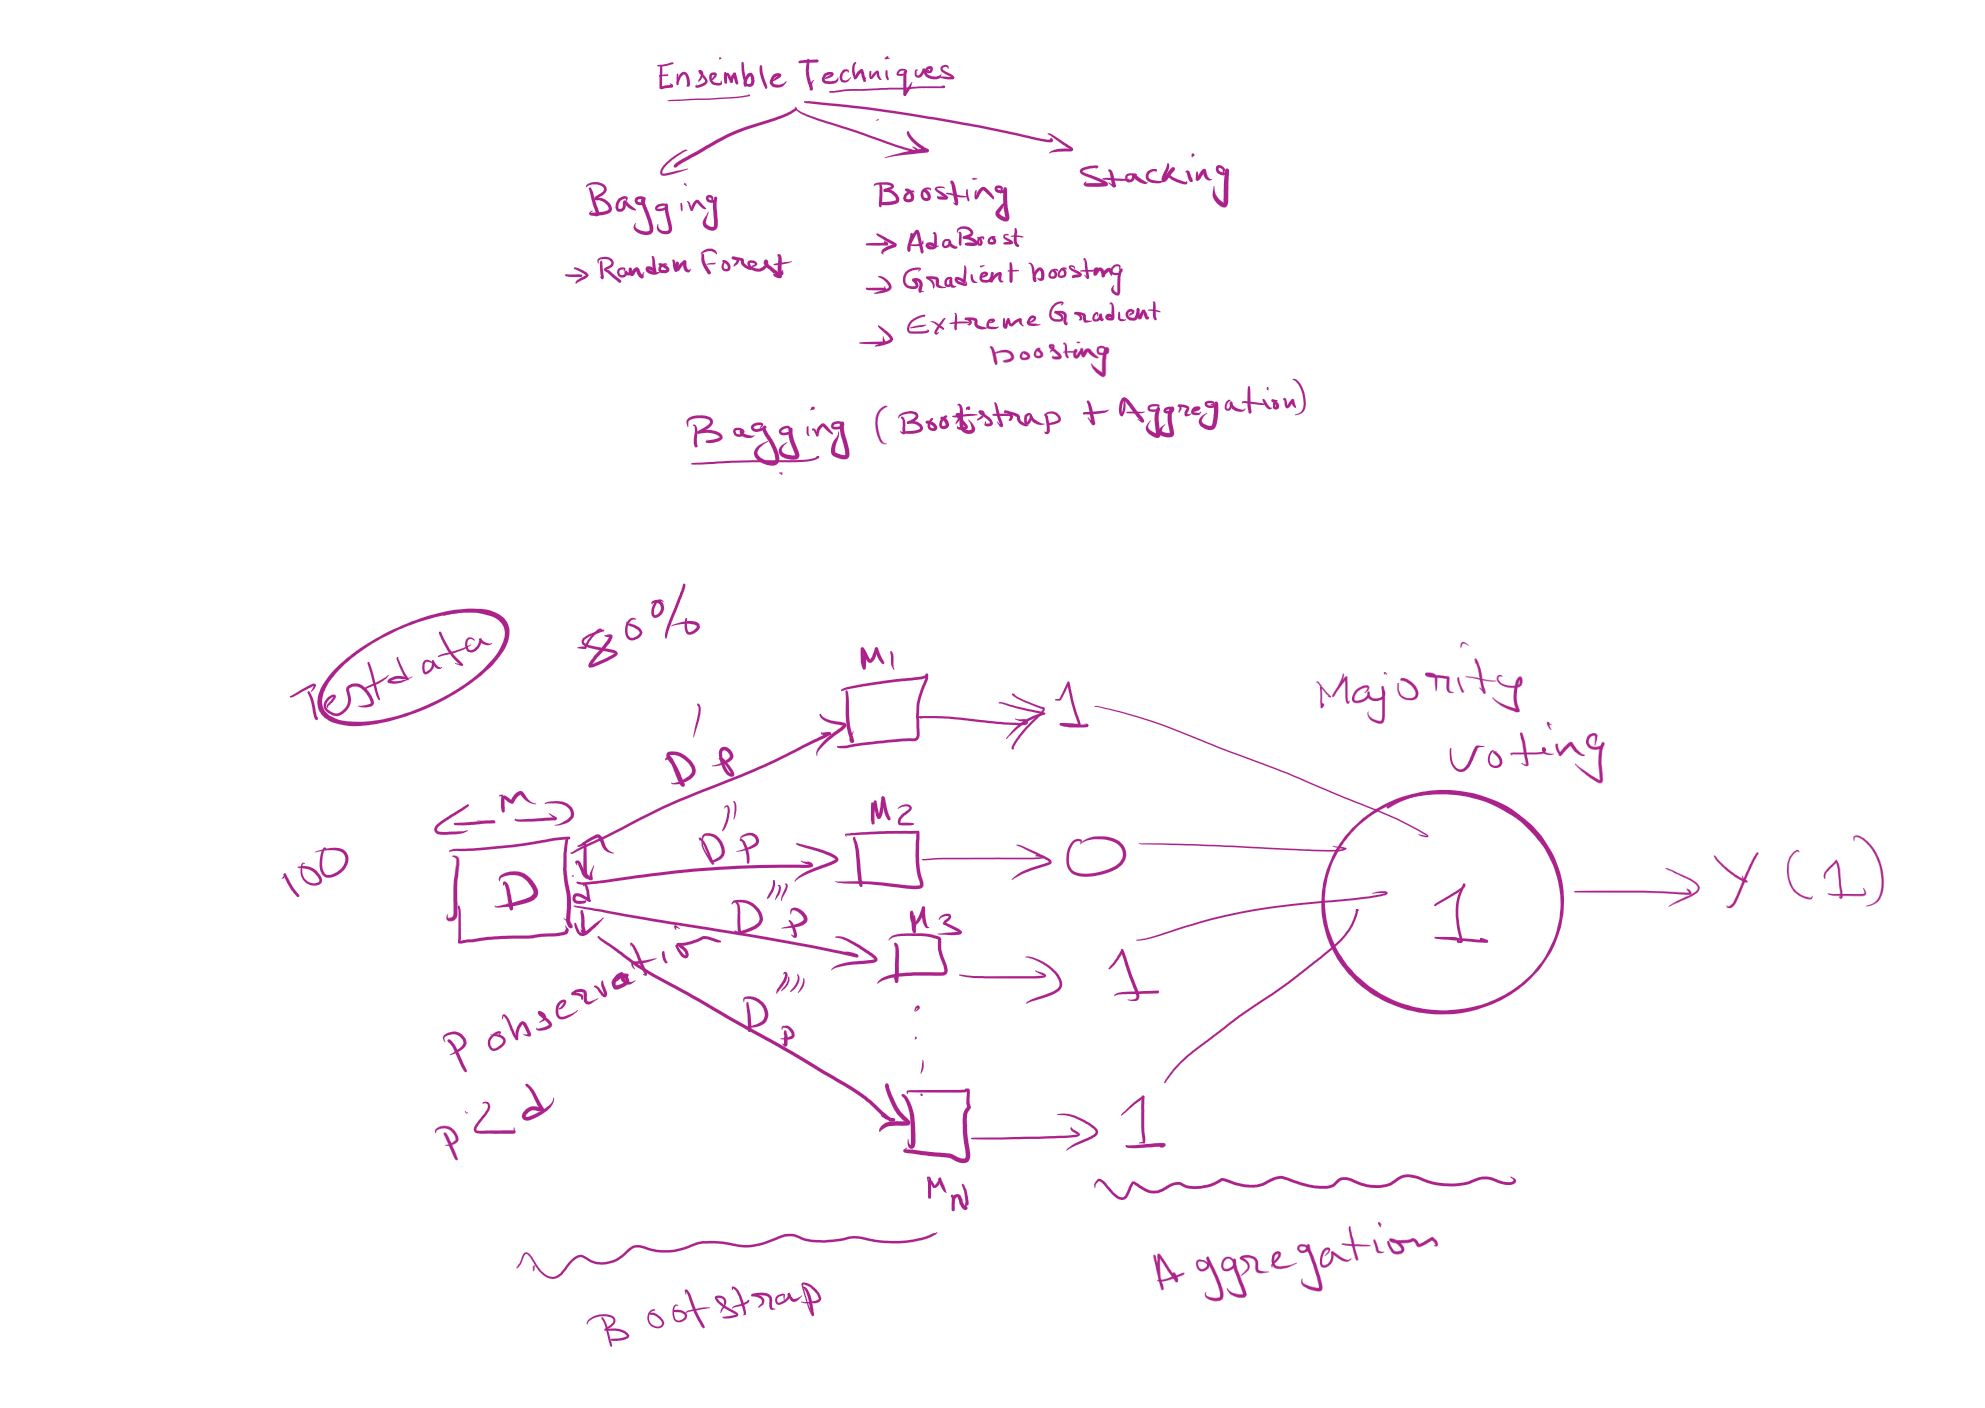 Ensemble Techniques
Bagging
→ Random Forest
Boosting
→ AdaBoost
→ Gradient boosting
→ Extreme Gradient
boosting
Stacking
Bagging (Bootstrap + Aggregation)
Testdata
80%
100
M
D
d
P observation
P < d
D'p
D''p
D'''p
D''''p
M1
M2
M3
MN
1
0
1
1
Majority
voting
1
Y (1)
Bootstrap
Aggregation